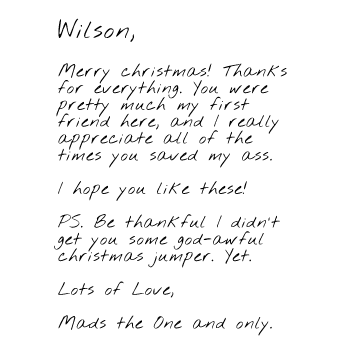 Wilson,
Merry christmas! Thanks
for everything. You were
pretty much my first
friend here, and I really
appreciate all of the
times you saved my ass.
I hope you like these!
PS. Be thankful I didn't
get you some god-awful
christmas jumper. Yet.
Lots of Love,
Mads the One and only.